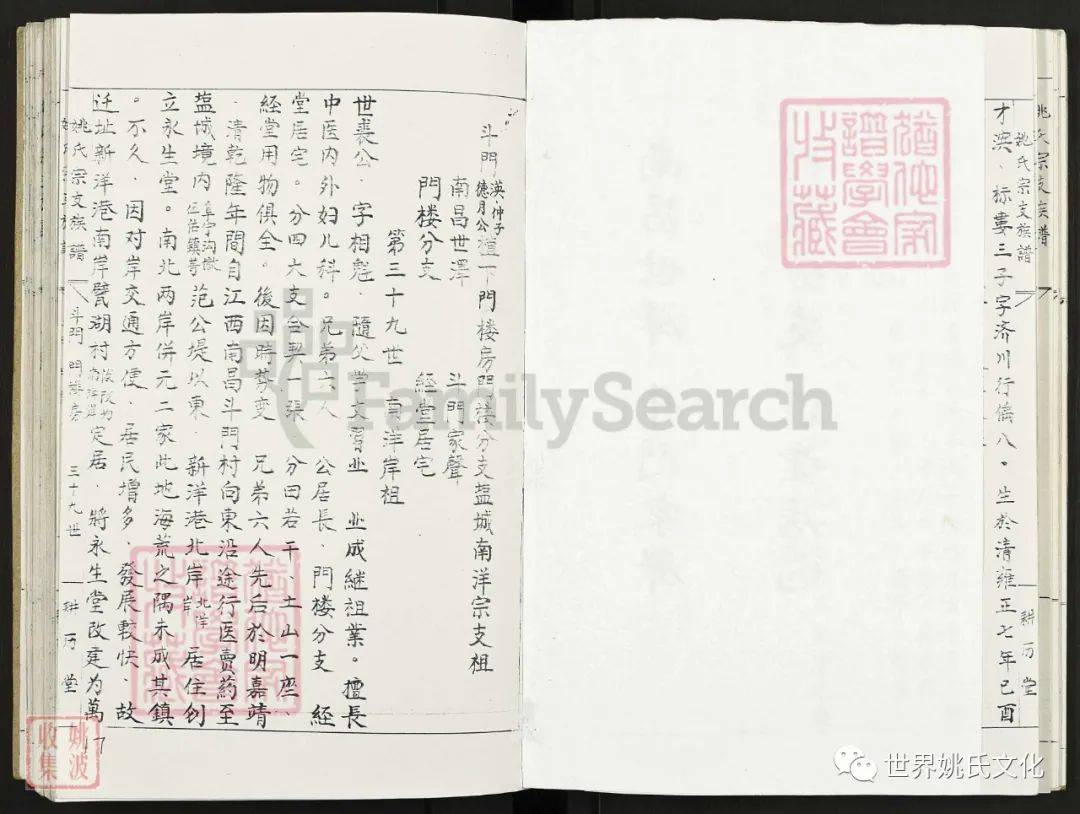 姚氏宗支族譜
耕历堂
姚氏宗支族譜
才浜、标婁三子字济川行儀八。生於清雍正七年己酉
猶他家譜學會收藏
斗門漢仲子德月公檀一下門楼房門楼分支塩城南洋宗支祖
南昌世澤 斗門家聲
門楼分支 經堂居宅
第三十九世 南洋岸祖
世裘公、字相魁、隨父学文習业 业成継祖業。擅長
中医内外妇儿科。兄弟六人 公居長、門楼分支 經
堂居宅。分四大支合契一張 分田若干、土山一座、
經堂用物俱全。後因時势变 兄弟六人先后於明嘉靖
、清乾隆年間自江西南昌斗門村向東沿途行医賣葯至
塩城境内阜宁沟墩伍佑鎮等范公堤以東、新洋港北岸北洋岸居住创
立永生堂。南北两岸併元二家此地海荒之隅未成其鎮
。不久、因对岸交通方便、居民增多、發展較快、故
迁址新洋港南岸甓湖村後改为南洋岸定居、將永生堂改建为萬
姚氏宗支族譜 斗門 門楼房 三十九世 耕历堂
猶他家譜學會收藏
17
姚波收集
FamilySearch
世界姚氏文化